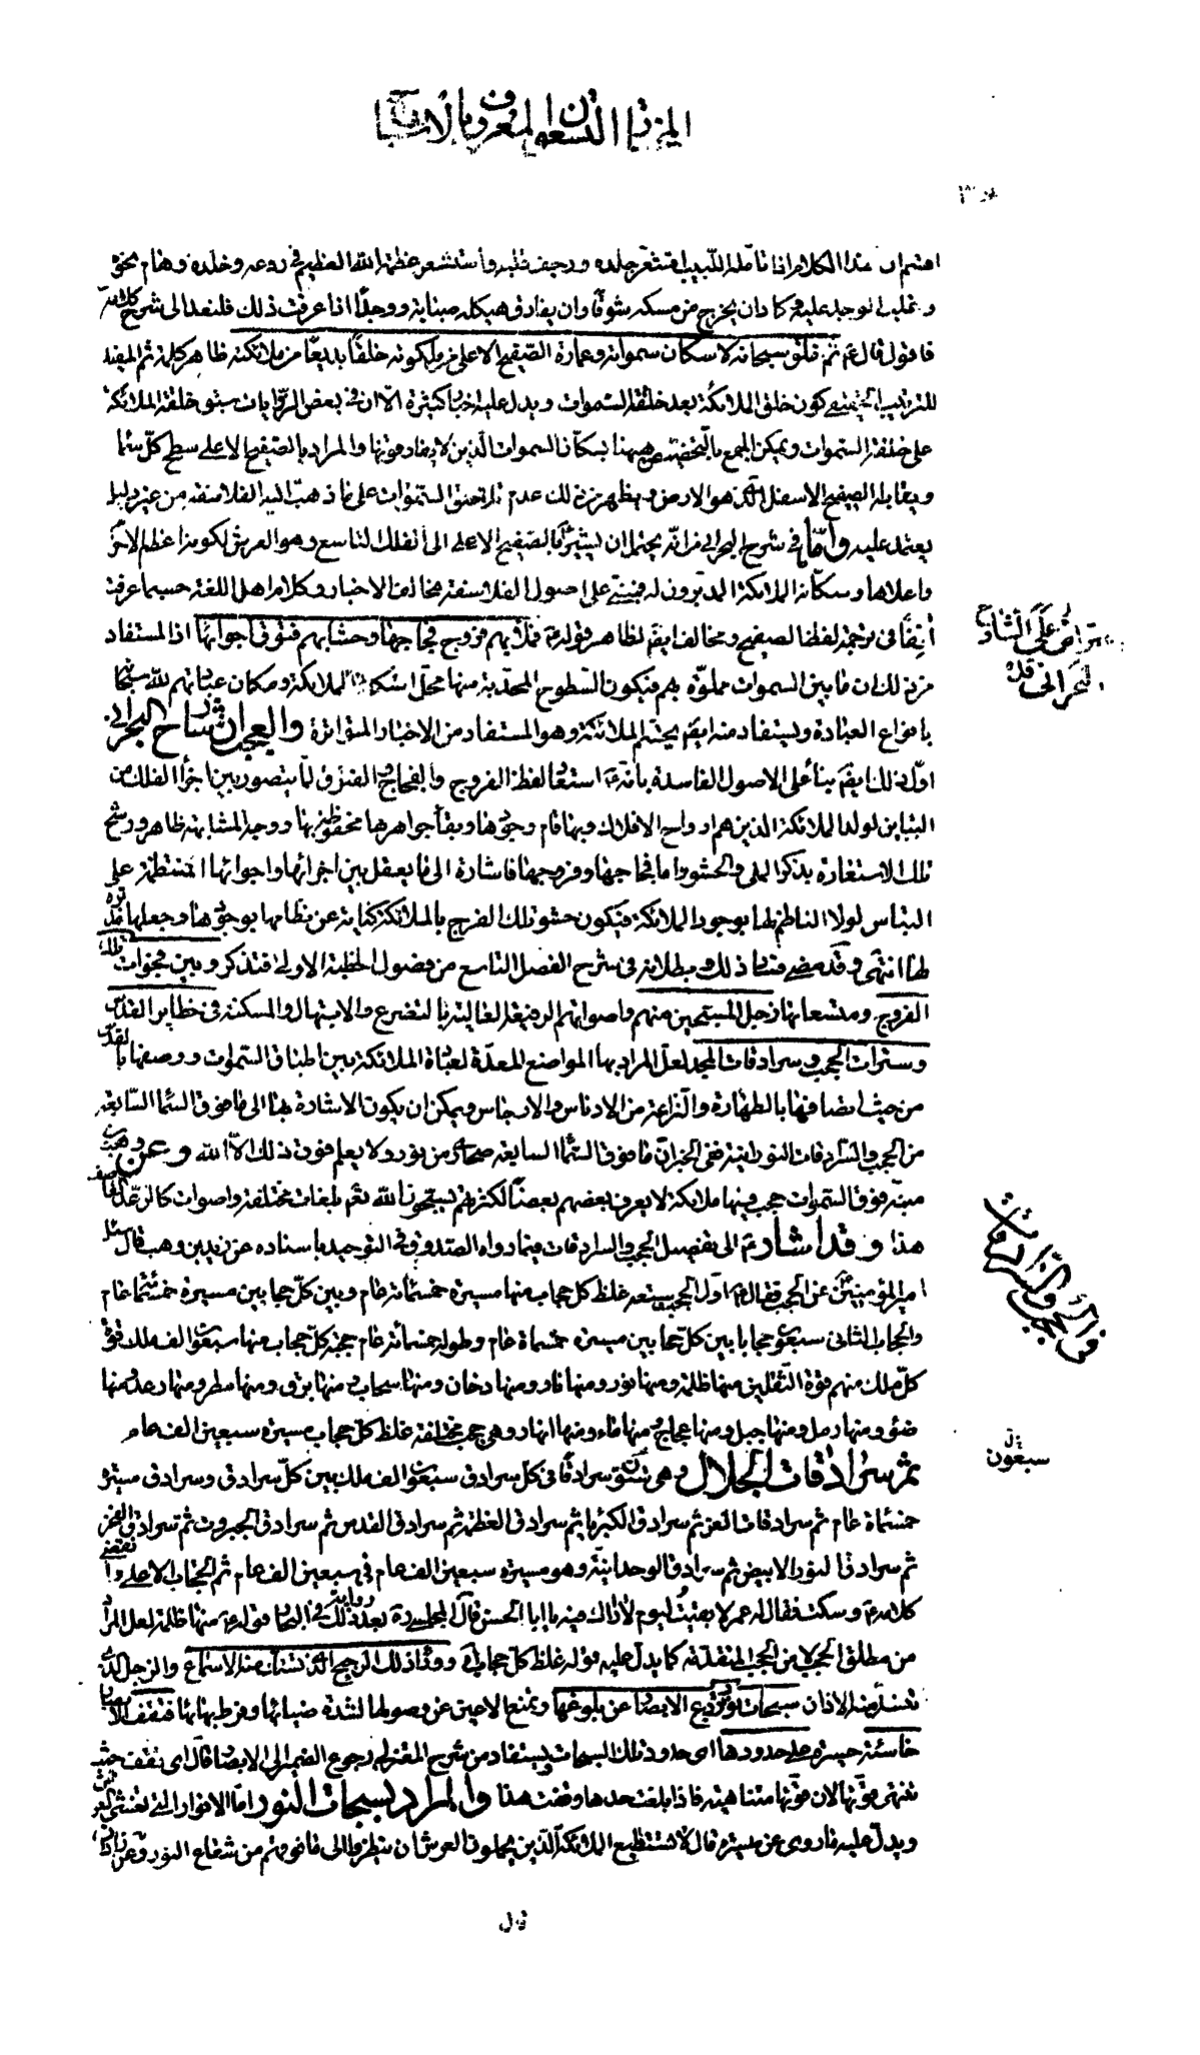 اقسم ان هذا الكلام اذا تأمله اللبيب اقشعر جلده و رجف قلبه و استشعر عظمة الله العظيم في روعه و خلده و هام نحوه
و غلب الوجد عليه و كاد ان يخرج من مسكه شوقا و ان يفارق هيكله صبابة و وجدا اذا عرفت ذلك فلنعد الى شرح كلامه
فاقول قال ع ثم خلق سبحانه لاسكان سمواته و عمارة الصفيح الاعلى من ملكوته خلقا بديعا من ملائكته ظاهر كلمة ثم المفيد
للترتيب الحقيقي كون خلق الملائكة بعد خلقة السموات و يدل عليه اخبار كثيرة الا ان في بعض الروايات سبق خلقة الملائكة
على خلقة السموات و يمكن الجمع بالتخصيص ههنا بسكان السموات الذين لا يفارقونها و المراد بالصفيح الاعلى سطح كل سماء
و يقابله الصفيح الاسفل الذي هو الارض و يظهر من ذلك عدم تلاصق السموات على ما ذهب اليه الفلاسفة من غير دليل
يعتمد عليه و اما ما في شرح البحراني من انه يحتمل ان يشير بالصفيح الاعلى الى الفلك التاسع و هو العرش لكونه اعظم الاجرام
و اعلاها و سكانه الملائكة المدبرون له فمبني على اصول الفلاسفة مخالف الاخبار و كلام اهل اللغة حسبما عرفت
آنفا في ترجمة لفظ الصفيح و مخالف ايضا لظاهر قوله ع فملأ بهم فروج فجاجها و حشا بهم فتوق اجوائها اذ المستفاد
من ذلك ان ما بين السموات مملوة بهم فيكون السطوح المحدبة منها محل اسكان الملائكة و مكان عباداتهم لله سبحانه
بانواع العبادة و يستفاد منه ايضا تجسم الملائكة و هو المستفاد من الاخبار المتواترة و العجب ان الشارح البحراني
اول ذلك ايضا بناء على الاصول الفاسدة بانه ع استعار لفظ الفروج و الفجاج و الفتوق لما يتصور بين اجزاء الفلك من
التباين لولا الملائكة الذين هم ارواح الافلاك و بها قام وجودها و بقاء جواهرها محفوظة بها و وجه المشابهة ظاهر و رشح
تلك الاستعارة بذكر الملى و الحشو و اما فجاجها و فروجها فاشارة الى ما يعقل بين اجزائها و اجوائها المنتظمة على
التباين لولا الناظم لها بوجود الملائكة فيكون حشو تلك الفرج بالملائكة كناية عن نظامها بوجودها و جعلها مدبرة
لها انتهى و قد مضى فساد ذلك و بطلانه في شرح الفصل التاسع من فصول الخطبة الاولى فتذكر و بين فجوات تلك
الفروج و متسعاتها زجل المسبحين منهم و اصواتهم الرفيعة العالية بالتضرع و الابتهال و المسكنة في حظاير القدس
و سترات الحجب و سرادقات المجد لعل المراد بها المواضع المعدة لعبادة الملائكة بين اطباق السموات و وصفها بالقدس
من حيث اتصافها بالطهارة و النزاهة من الادناس و الارجاس و يمكن ان يكون الاشارة بها الى ما فوق السماء السابعة
من الحجب و السرادقات النورانية ففي الخبر ان ما فوق السماء السابعة صحاري من نور و لا يعلم فوق ذلك الا الله و عن وهب بن
منبه فوق السموات حجب فيها ملائكة لا يعرف بعضهم بعضا لكثرتهم يسبحون الله بلغات مختلفة و اصوات كالرعد القاصف
هذا و قد اشار ع الى تفصيل الحجب و السرادقات فيما رواه الصدوق في التوحيد باسناده عن زيد بن وهب قال سئل
امير المؤمنين ع عن الحجب فقال ع اول الحجب سبعة غلظ كل حجاب منها مسيرة خمسمائة عام و بين كل حجابين مسيرة خمسمائة عام
و الحجاب الثاني سبعون حجابا بين كل حجابين مسيرة خمسمائة عام و طوله خمسمائة عام حجبة كل حجاب منها سبعون الف ملك قوة
كل ملك منهم قوة الثقلين منها ظلمة و منها نور و منها نار و منها دخان و منها سحاب و منها برق و منها مطر و منها رعد و منها
ضوء و منها رمل و منها جبل و منها عجاج و منها ماء و منها انهار و هي حجب مختلفة غلظ كل حجاب مسيرة سبعين الف عام
ثم سرادقات الجلال و هي ستون سرادقا في كل سرادق سبعون الف ملك بين كل سرادق و سرادق مسيرة
خمسمائة عام ثم سرادقات العز ثم سرادق الكبرياء ثم سرادق العظمة ثم سرادق القدس ثم سرادق الجبروت ثم سرادق الفخر
ثم سرادق النور الابيض ثم سرادق الوحدانية و هو مسيرة سبعين الف عام في سبعين الف عام ثم الحجاب الاعلى و انقضى
كلامه ع و سكت فقال له عمر لا بقيت ليوم لا اراك فيه يا ابا الحسن قال المجلسي ره بعد ذلك رواية في البحار قوله ع منها ظلمة لعل المراد
من مطلق الحجب لا من الحجب المتقدمة كما يدل عليه قوله غلظ كل حجاب اه و وراء ذلك الرجيج الذي تستك منه الاسماع و الزجل الذي
تنسد منه الاذان سبحات نور تردع الابصار عن بلوغها و يمنع الاعين عن وصولها لشدة ضيائها و فرط بهائها فتقف الابصار
خاسئة حسيرة على حدودها اى حدود تلك السبحات و يستفاد من شرح المعتزلي رجوع الضمير الى الابصار قال اى تقف حيث
تنتهى قوتها لان قوتها متناهية فاذا بلغت حدها وقفت هذا و المراد بسبحات النور اما الانوار التي تغشى العرش
و يدل عليه ما روى عن ميسرة قال لا تستطيع الملائكة الذين يحملون العرش ان ينظروا الى ما فوقهم من شعاع النور و عن زاذان
سبعون